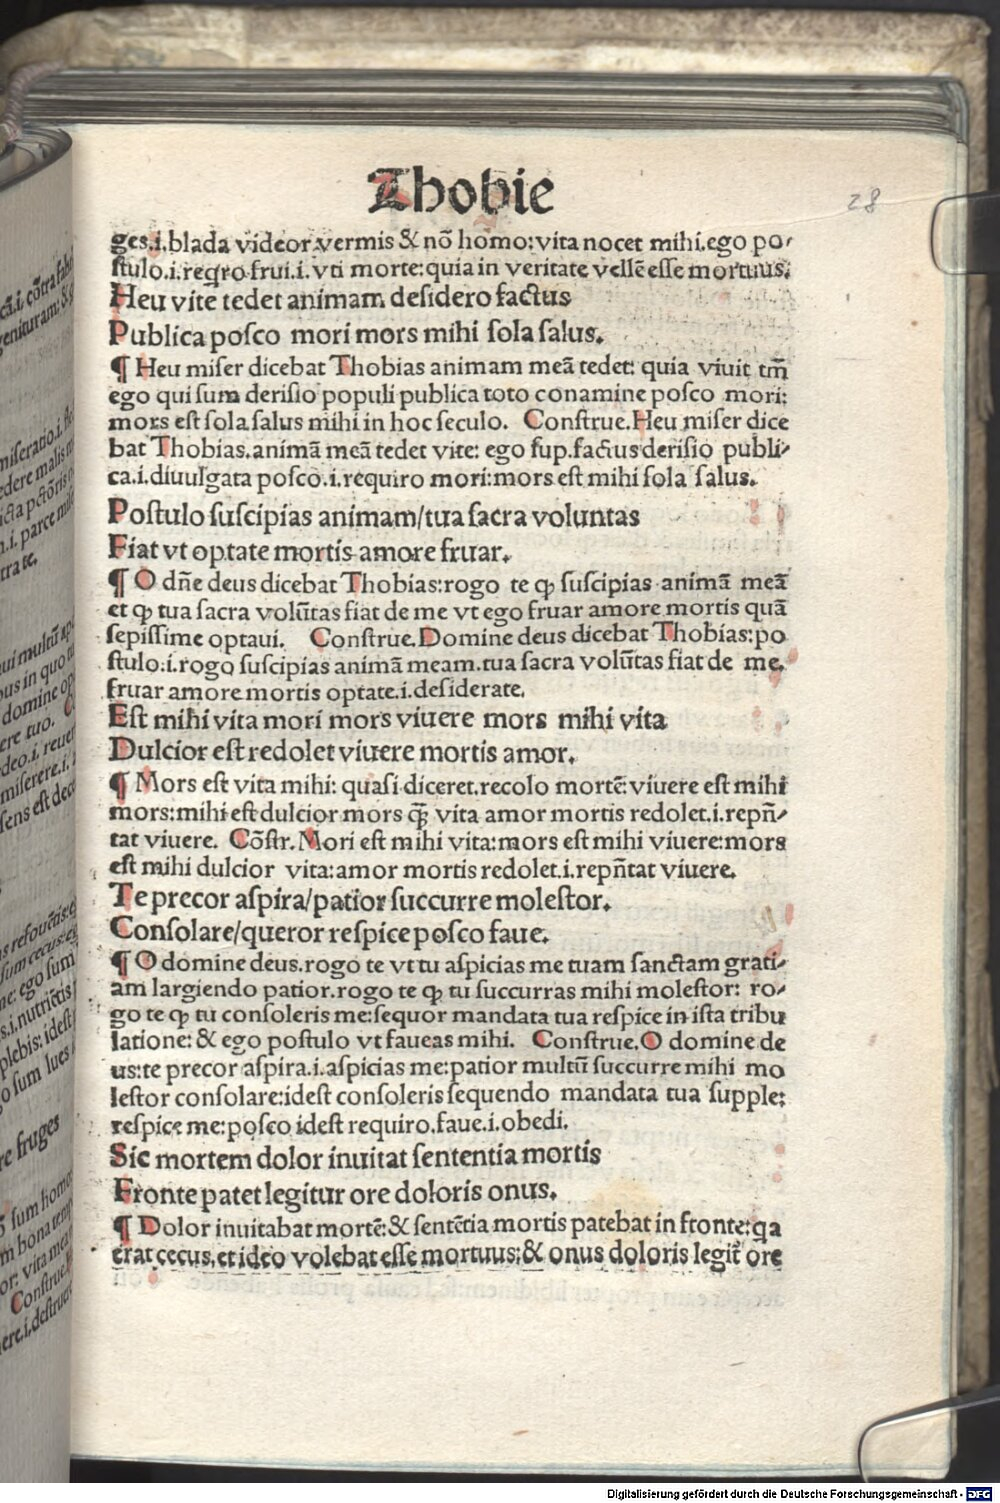 Thobie
28
ges.i.blada videor.vermis & nõ homo:vita nocet mihi.ego po-
stulo.i.reqro frui.i. vti morte:quia in veritate vellẽ esse mortuus.
Heu vite tedet animam desidero factus
Publica posco mori mors mihi sola salus.
¶ Heu miser dicebat Thobias animam meã tedet: quia viuit tm̃
ego qui sum derisio populi publica toto conamine posco mori:
mors est sola salus mihi in hoc seculo. Construe.Heu miser dice
bat Thobias.animã meã tedet vite: ego sup.factus derisio publi-
ca.i.diuulgata posco.i.requiro mori:mors est mihi sola salus.
Postulo suscipias animam/tua sacra voluntas
Fiat vt optate mortis amore fruar.
¶ O dñe deus dicebat Thobias:rogo te ꝙ suscipias animã meã
et ꝙ tua sacra volũtas fiat de me vt ego fruar amore mortis quã
sepissime optaui. Construe.Domine deus dicebat Thobias:po
stulo.i.rogo suscipias animã meam.tua sacra volũtas fiat de me.
fruar amore mortis optate.i.desiderate.
Est mihi vita mori mors viuere mors mihi vita
Dulcior est redolet viuere mortis amor.
¶ Mors est vita mihi: quasi diceret.recolo mortẽ: viuere est mihi
mors:mihi est dulcior mors q̃ȝ vita amor mortis redolet.i.repñ-
tat viuere. Cõstr.Mori est mihi vita:mors est mihi viuere:mors
est mihi dulcior vita:amor mortis redolet.i.repñtat viuere.
Te precor aspira/patior succurre molestor.
Consolare/queror respice posco faue.
¶ O domine deus.rogo te vt tu aspicias me tuam sanctam grati-
am largiendo patior.rogo te ꝙ tu succurras mihi molestor: ro-
go te ꝙ tu consoleris me:sequor mandata tua respice in ista tribu
latione: & ego postulo vt faueas mihi. Construe.O domine de
us:te precor aspira.i.aspicias me:patior multũ succurre mihi mo
lestor consolare:idest consoleris sequendo mandata tua supple:
respice me:posco idest requiro.faue.i.obedi.
Sic mortem dolor inuitat sententia mortis
Fronte patet legitur ore doloris onus.
¶ Dolor inuitabat mortẽ:& sentẽtia mortis patebat in fronte:qa
erat cecus.et ideo volebat esse mortuus:& onus doloris legit̃ ore
Digitalisierung gefördert durch die Deutsche Forschungsgemeinschaft - DFG